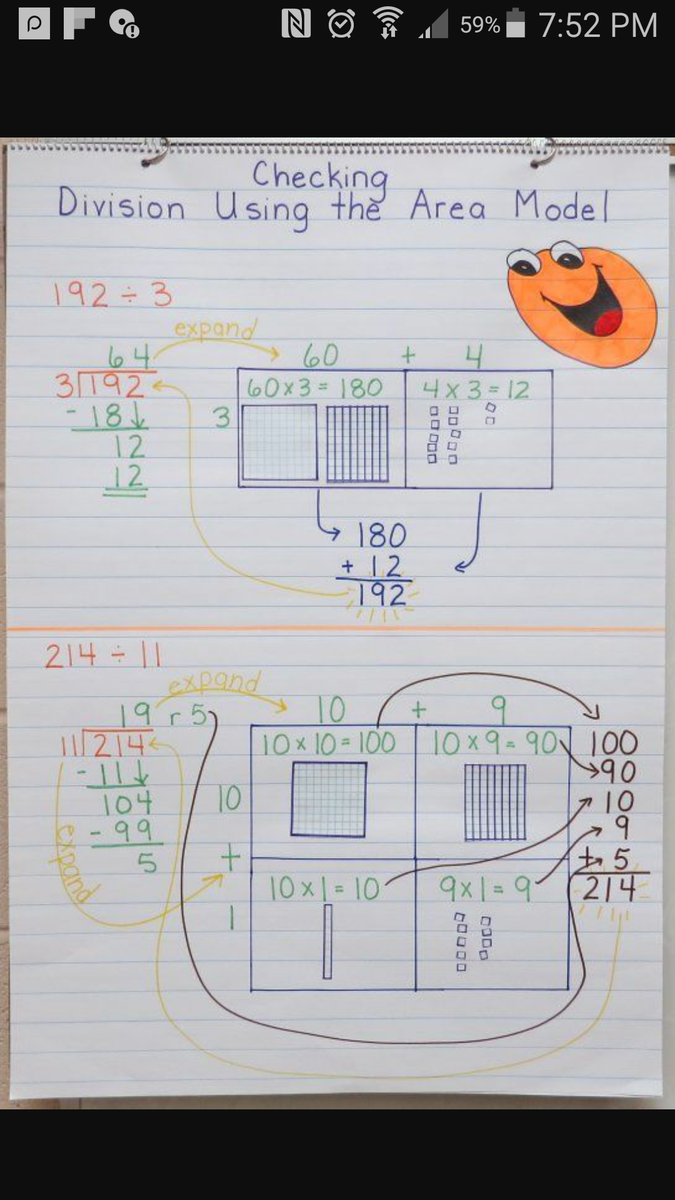 59% 7:52 PM
Checking
Division Using the Area Model
192 ÷ 3
expand
64
60 + 4
3 192
60 x 3 = 180
4 x 3 = 12
- 18
3
12
12
180
+ 12
192
214 ÷ 11
expand
19 r 5
10 + 9
11 214
10 x 10 = 100
10 x 9 = 90
100
- 11
90
104
10
10
- 99
9
5
+
+ 5
expand
10 x 1 = 10
9 x 1 = 9
214
1